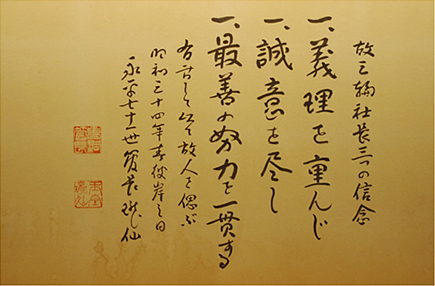 故三輪社長三つの信念
一、義理を重んじ
一、誠意を尽し
一、最善の努力を一貫する
右記して以て故人を偲ぶ
昭和三十四年春彼岸之日
永平七十一世 瓏仙